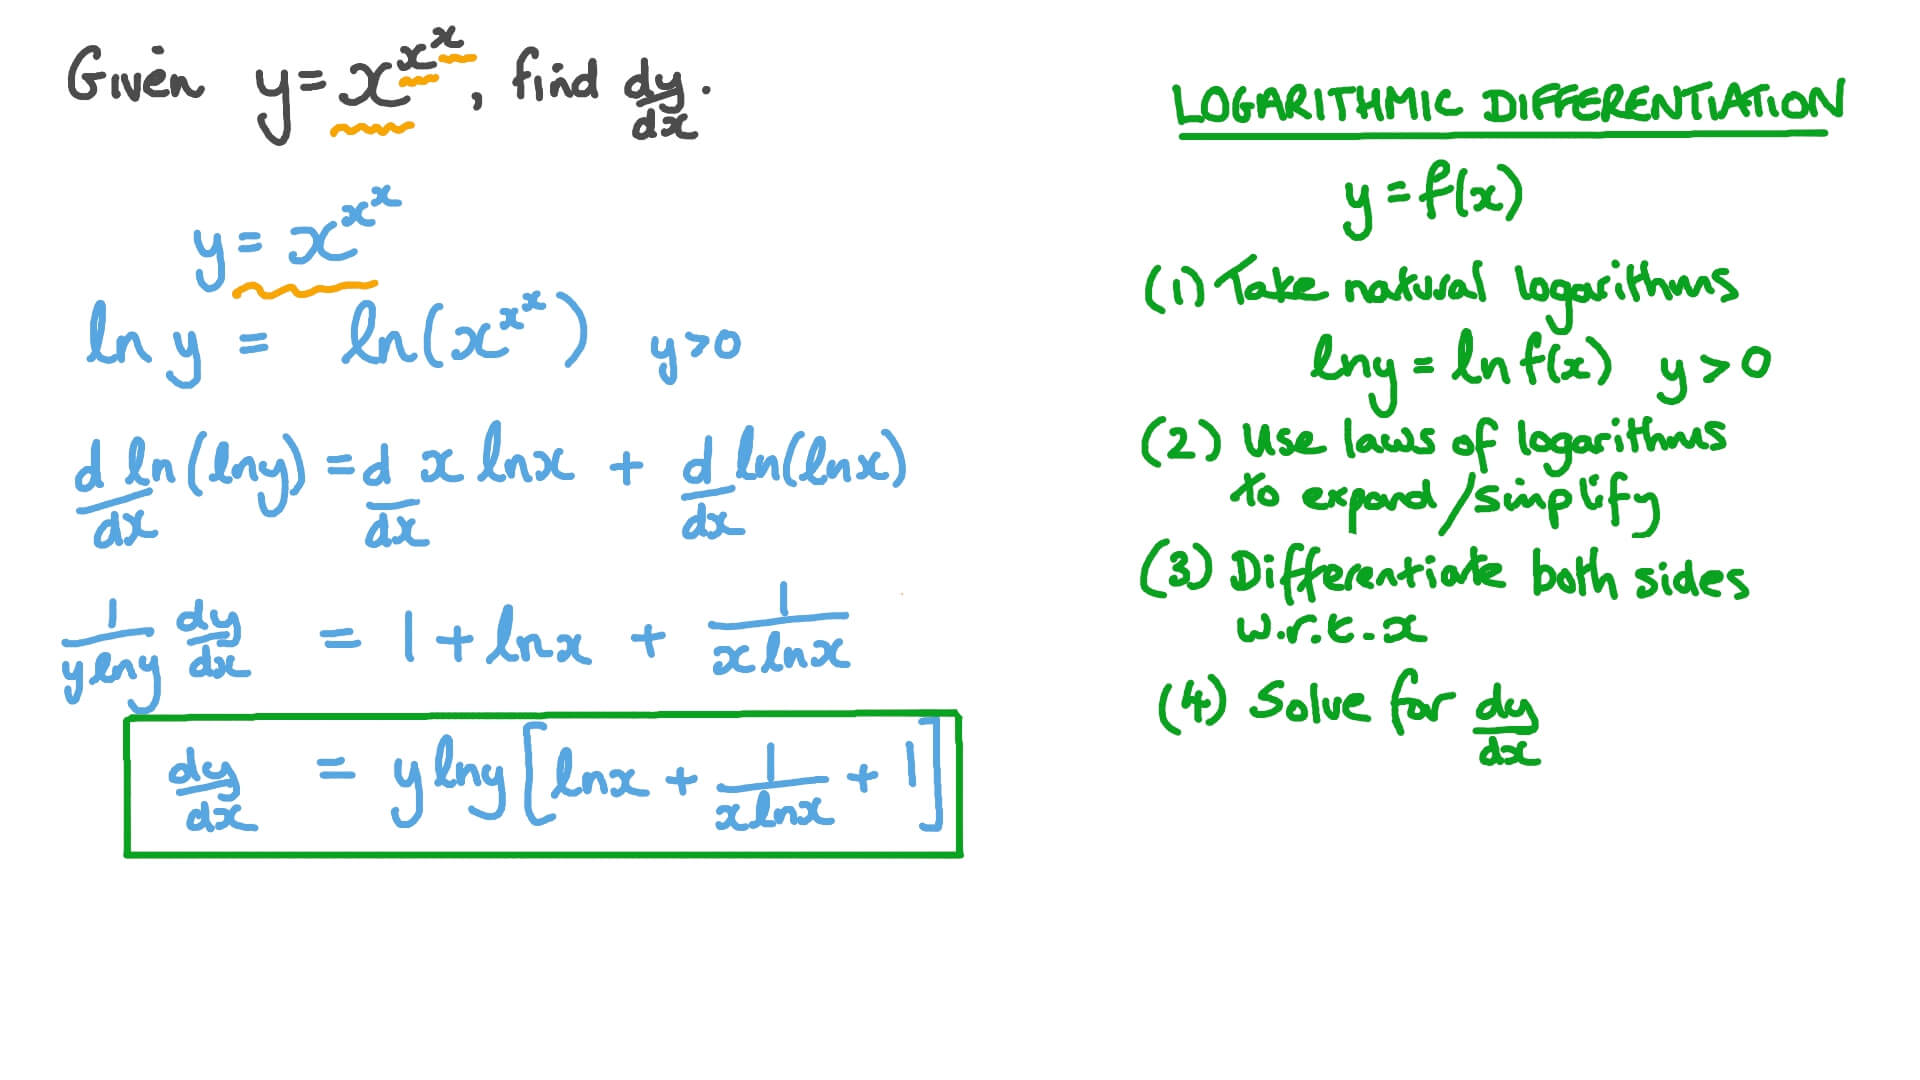 Given y = x^{x^x}, find dy/dx.
y = x^{x^x}
ln y = ln(x^{x^x}) y>0
d/dx ln(lny) = d/dx x lnx + d/dx ln(lnx)
1/(y lny) dy/dx = 1 + lnx + 1/(x lnx)
dy/dx = y lny [lnx + 1/(x lnx) + 1]
LOGARITHMIC DIFFERENTIATION
y = f(x)
(1) Take natural logarithms
lny = ln f(x) y > 0
(2) Use laws of logarithms
to expand/simplify
(3) Differentiate both sides
w.r.t. x
(4) Solve for dy/dx